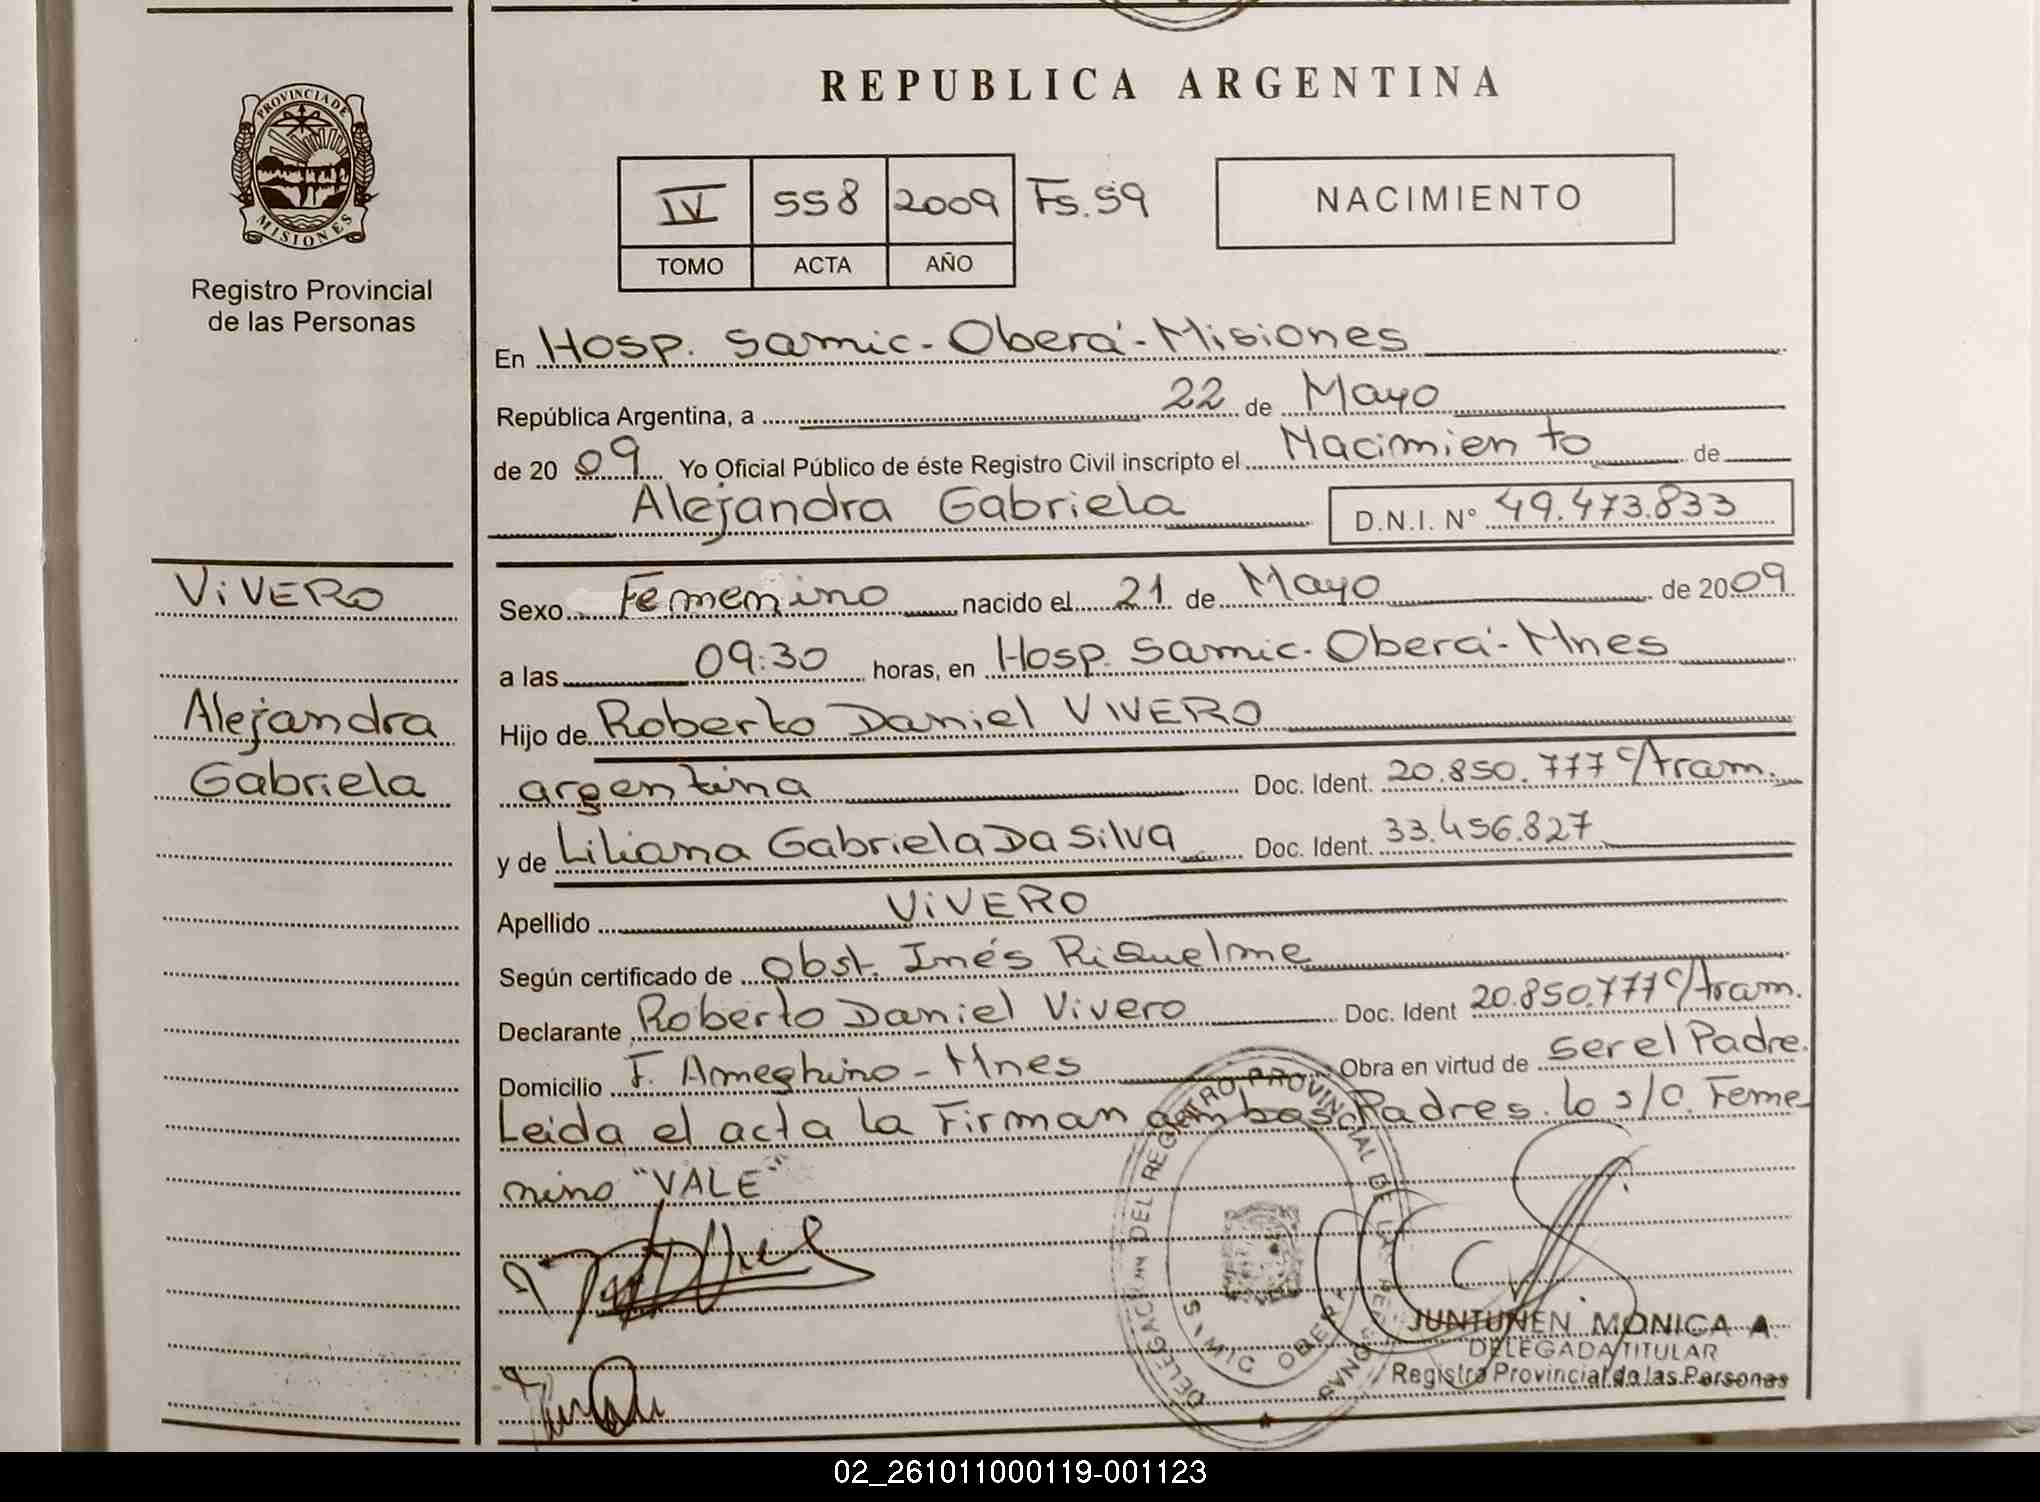 REPUBLICA ARGENTINA
PROVINCIA DE
MISIONES
Registro Provincial
de las Personas
IV 558 2009 Fs. 59
TOMO ACTA AÑO
NACIMIENTO
En Hosp. Samic - Oberá - Misiones
República Argentina, a 22 de Mayo
de 2009 Yo Oficial Público de éste Registro Civil inscripto el Nacimiento de
Alejandra Gabriela D.N.I. N° 49.473.833
VIVERO
Alejandra
Gabriela
Sexo Femenino nacido el 21 de Mayo de 2009
a las 09:30 horas, en Hosp. Samic - Oberá - Mnes
Hijo de Roberto Daniel VIVERO
argentina Doc. Ident. 20.850.777 c/tram.
y de Liliana Gabriela Da Silva Doc. Ident. 33.456.827
Apellido VIVERO
Según certificado de Obst. Inés Riquelme
Declarante Roberto Daniel Vivero Doc. Ident 20.850.777 c/tram.
Domicilio F. Ameghino - Mnes Obra en virtud de ser el Padre.
Leida el acta la Firman ambos Padres. lo s/o. Feme
nino "VALE"
DELEGACION DEL REGISTRO PROVINCIAL DE LAS PERSONAS
SAMIC OBERA
JUNTUNEN MONICA A
DELEGADA TITULAR
Registro Provincial de las Personas
02_261011000119-001123